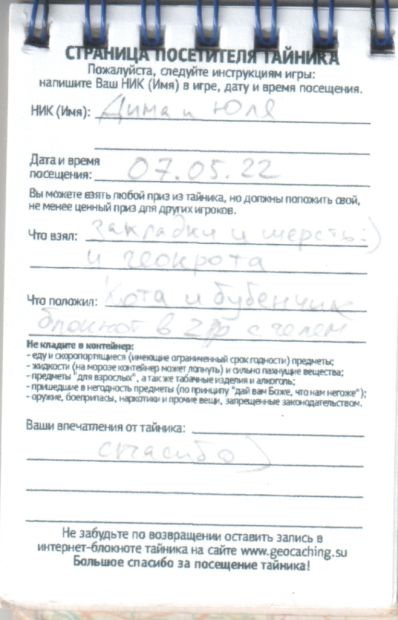 СТРАНИЦА ПОСЕТИТЕЛЯ ТАЙНИКА
Пожалуйста, следуйте инструкциям игры:
напишите Ваш НИК (Имя) в игре, дату и время посещения.
НИК (Имя): Дима и Юля
Дата и время
посещения: 07.05.22
Вы можете взять любой приз из тайника, но должны положить свой,
не менее ценный приз для других игроков.
Что взял: закладки и шерсть:)
и геокрота
Что положил: Кота и бубенчик
блокнот в гр с гелем
Не кладите в контейнер:
- еду и скоропортящиеся (имеющие ограниченный срок годности) предметы;
- жидкости (на морозе контейнер может лопнуть) и сильно пахнущие вещества;
- предметы "для взрослых", а так же табачные изделия и алкоголь;
- пришедшие в негодность предметы (по принципу "дай вам Боже, что нам негоже");
- оружие, боеприпасы, наркотики и прочие вещи, запрещенные законодательством.
Ваши впечатления от тайника:
спасибо)
Не забудьте по возвращении оставить запись в
интернет-блокноте тайника на сайте www.geocaching.su
Большое спасибо за посещение тайника!